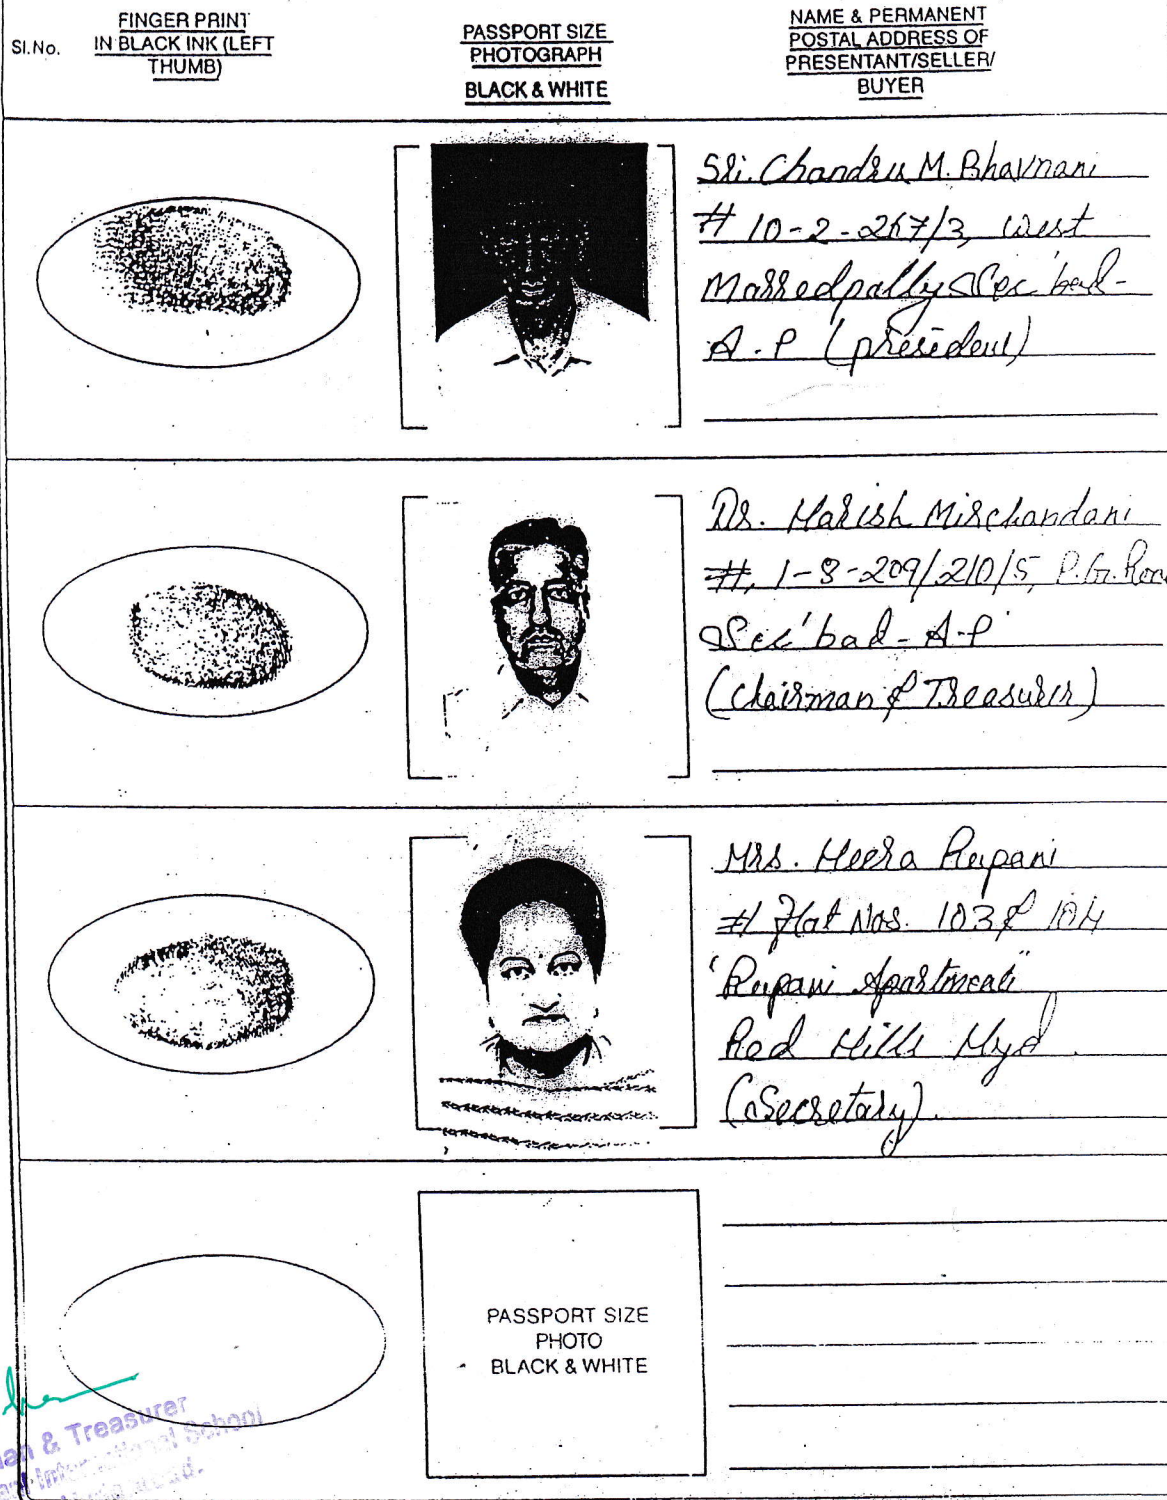 Sl.No.
FINGER PRINT
IN BLACK INK (LEFT
THUMB)
PASSPORT SIZE
PHOTOGRAPH
BLACK & WHITE
NAME & PERMANENT
POSTAL ADDRESS OF
PRESENTANT/SELLER/
BUYER
Sri. Chandru M. Bhavnani
# 10-2-267/3, West
Marredpally Sec'bad-
A.P (president)
Dr. Harish Mirchandani
#, 1-8-209/210/5, P.G. Roa
Sec'bad - A-P
(Chairman & Treasurer)
Mrs. Heera Rupani
# Flat Nos. 103 & 104
"Rupani Apartment"
Red Hills Hyd.
(Secretary).
PASSPORT SIZE
PHOTO
BLACK & WHITE
an & Treasurer
School